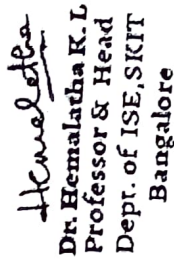 Hemaletha
Dr. Hemalatha K. L
Professor & Head
Dept. of ISE, SKIT
Bangalore